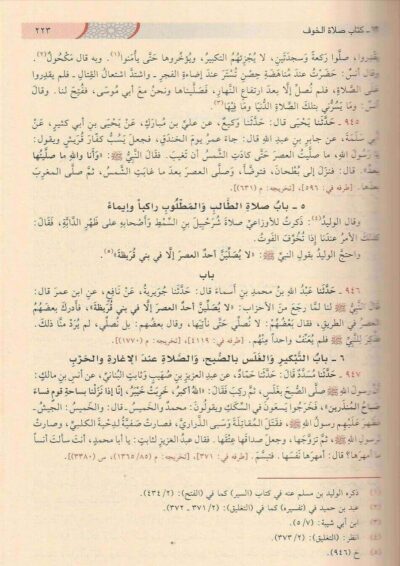 ١٢ - كتاب صلاة الخوف ٢٢٣
يقدروا، صلَّوا ركعةً وسجدتين، لا يُجزئهم التكبير، ويُؤخِّروها حتَّى يأمنوا(١). وبه قال مكحولٌ(٢).
وقال أنسٌ: حضرْتُ عندَ مُناهَضَةِ حِصْنِ تُسْتَرَ عندَ إضاءةِ الفجرِ - واشتدَّ اشتعالُ القتالِ - فلم يقدروا
على الصَّلاةِ، فلم نُصلِّ إلَّا بعدَ ارتفاعِ النَّهارِ، فصَلَّيناها ونحنُ معَ أبي موسى، فَفُتِحَ لنا. وقالَ
أنسٌ: وما يَسُرُّني بتلكَ الصَّلاةِ الدُّنيا وما فيها(٣).
٩٤٥ - حدَّثنا يَحْيَى قال: حدَّثنا وكيعٌ، عن عليِّ بنِ مُباركٍ، عن يَحْيَى بنِ أبي كثيرٍ، عن
أبي سلَمةَ، عن جابرِ بنِ عبدِ اللهِ قال: جاءَ عمرُ يومَ الخندقِ، فجعلَ يَسُبُّ كفَّارَ قُريشٍ ويقول:
يا رسولَ اللهِ، ما صلَّيتُ العصرَ حتَّى كادَتِ الشَّمسُ أن تغيبَ. فقالَ النَّبيُّ ﷺ: «وأنا واللهِ ما صلَّيتُها
بعدُ». قال: فنزلَ إلى بُطْحانَ، فتوضَّأَ، وصلَّى العصرَ بعدَ ما غابَتِ الشَّمسُ، ثمَّ صلَّى المغربَ
بعدَها. [طرفه في: ٥٩٦]، [تخريجه: م (٦٣١)].
٥ - بابُ صلاةِ الطَّالبِ والمَطلُوبِ راكباً وإيماءً
وقال الوليدُ(٤): ذكرتُ للأوزاعيِّ صلاةَ شُرَحْبيلَ بنِ السِّمْطِ وأصحابِهِ على ظهرِ الدَّابَّةِ، فقالَ:
كذلكَ الأمرُ عندَنا إذا تُخُوِّفَ الفَوتُ.
واحتجَّ الوليدُ بقولِ النَّبيِّ ﷺ: «لا يُصلِّيَنَّ أحدٌ العصرَ إلَّا في بني قُريظةَ»(٥).
باب
٩٤٦ - حدَّثنا عبدُ اللهِ بنُ محمدِ بنِ أسماءَ قال: حدَّثنا جُويريةُ، عن نافعٍ، عن ابنِ عمرَ قال:
قالَ النَّبيُّ ﷺ لنا لمَّا رجعَ منَ الأحزابِ: «لا يُصلِّيَنَّ أحدٌ العصرَ إلَّا في بني قُريظةَ»، فأدركَ بعضَهُمُ
العصرُ في الطريقِ، فقال بعضُهُمْ: لا نُصلِّي حتَّى نأتيَها، وقال بعضُهم: بل نُصلِّي، لم يُرَدْ منَّا ذلكَ.
فذُكِرَ للنَّبيِّ ﷺ فلم يُعَنِّفْ واحداً منهُم. [طرفه في: ٤١١٩]، [تخريجه: م (١٧٧٠)].
٦ - بابُ التَّبْكيرِ والغَلَسِ بالصُّبحِ، والصَّلاةِ عندَ الإغارةِ والحَرْبِ
٩٤٧ - حدَّثنا مُسدَّدٌ قال: حدَّثنا حمَّادٌ، عن عبدِ العزيزِ بنِ صُهيبٍ وثابتٍ البُنانيِّ، عن أنسِ بنِ مالكٍ:
أنَّ رسولَ اللهِ ﷺ صلَّى الصُّبحَ بغَلَسٍ، ثمَّ ركبَ فقال: «اللهُ أكبرُ، خَرِبَتْ خَيْبرُ، إنَّا إذا نزَلْنا بساحةِ قومٍ فساءَ
صباحُ المُنذَرين»، فخرَجُوا يَسعَونَ في السِّكَكِ ويقولُونَ: محمدٌ والخَميسُ - قال: والخَميسُ: الجيشُ -
فظهرَ عليهِم رسولُ اللهِ ﷺ، فقتلَ المُقاتِلةَ وسبَى الذَّراريَّ، فصارت صفيَّةُ لدِحيةَ الكلبيِّ، وصارَتْ
لرسولِ اللهِ ﷺ، ثمَّ تزوَّجَها، وجعلَ صَداقَها عِتْقَها. فقال عبدُ العزيزِ لثابتٍ: يا أبا محمدٍ، أنتَ سألتَ أنساً
ما أَمهرَها؟ قال: أَمهرَها نَفْسَها. فتبسَّمَ. [طرفه في: ٣٧١]، [تخريجه: م (١٣٦٥/٨٥)، س (٣٣٨٠)].
(١) ذكره الوليد بن مسلم عنه في كتاب (السير) كما في (الفتح): (٤٣٤/٢).
(٢) عبد بن حميد في (تفسيره) كما في (التغليق): (٣٧١/٢ - ٣٧٢).
(٣) ابن أبي شيبة: (٥/٧).
(٤) انظر: (التغليق): (٣٧٣/٢).
(٥) خ (٩٤٦).